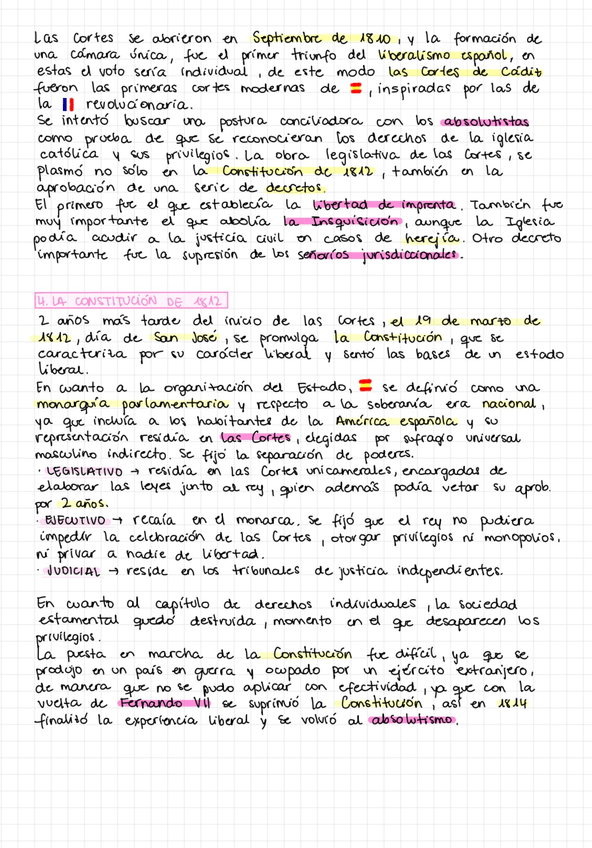 Las Cortes se abrieron en Septiembre de 1810, y la formación de
una cámara única, fue el primer triunfo del liberalismo español, en
estas el voto sería individual, de este modo las Cortes de Cádiz
fueron las primeras cortes modernas de 🇪🇸, inspiradas por las de
la 🇫🇷 revolucionaria.
Se intentó buscar una postura conciliadora con los absolutistas
como prueba de que se reconocieran los derechos de la iglesia
católica y sus privilegios. La obra legislativa de las Cortes, se
plasmó no sólo en la Constitución de 1812, también en la
aprobación de una serie de decretos.
El primero fue el que establecía la libertad de imprenta. También fue
muy importante el que abolía la Insquisición, aunque la Iglesia
podía acudir a la justicia civil en casos de herejía. Otro decreto
importante fue la supresión de los señoríos jurisdiccionales.
4. LA CONSTITUCIÓN DE 1812
2 años más tarde del inicio de las Cortes, el 19 de marzo de
1812, día de San José, se promulga la Constitución, que se
caracteriza por su carácter liberal y sentó las bases de un estado
liberal.
En cuanto a la organización del Estado, 🇪🇸 se definió como una
monarquía parlamentaria y respecto a la soberanía era nacional,
ya que incluía a los habitantes de la América española y su
representación residía en las Cortes, elegidas por sufragio universal
masculino indirecto. Se fijó la separación de poderes.
· LEGISLATIVO → residía en las Cortes unicamerales, encargadas de
elaborar las leyes junto al rey, quien además podía vetar su aprob.
por 2 años.
· EJECUTIVO → recaía en el monarca. Se fijó que el rey no pudiera
impedir la celebración de las Cortes, otorgar privilegios ni monopolios,
ni privar a nadie de libertad.
· JUDICIAL → reside en los tribunales de justicia independientes.
En cuanto al capítulo de derechos individuales, la sociedad
estamental quedó destruida, momento en el que desaparecen los
privilegios.
La puesta en marcha de la Constitución fue difícil, ya que se
produjo en un país en guerra y ocupado por un ejército extranjero,
de manera que no se pudo aplicar con efectividad, ya que con la
vuelta de Fernando VII se suprimió la Constitución, así en 1814
finalizó la experiencia liberal y se volvió al absolutismo.